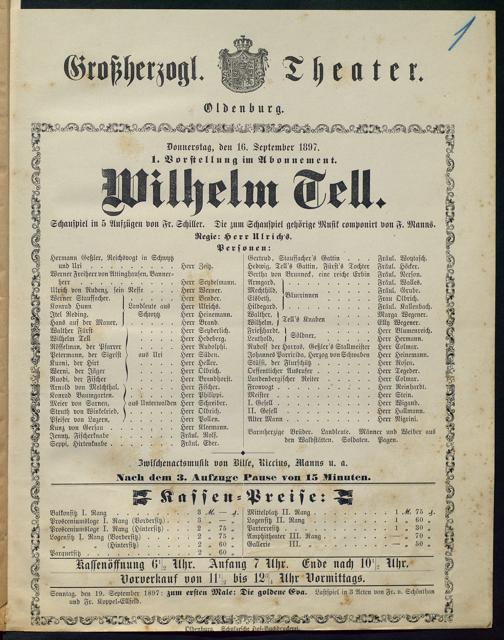 1
Großherzogl. Theater.
Oldenburg.
Donnerstag, den 16. September 1897.
1. Vorstellung im Abonnement.
Wilhelm Tell.
Schauspiel in 5 Aufzügen von Fr. Schiller. Die zum Schauspiel gehörige Musik componirt von F. Manns.
Regie: Herr Ulrichs.
Personen:
Hermann Geßler, Reichsvogt in Schwytz
und Uri Herr Zeitz.
Werner Freiherr von Attinghausen, Banner-
herr Herr Seydelmann.
Ulrich von Rudenz, sein Neffe Herr Werner.
Werner Stauffacher, Herr Bender.
Konrad Hunn Landleute aus Herr Ulrichs.
Itel Reding, Schwytz Herr Heinemann.
Hans auf der Mauer, Herr Brand.
Walther Fürst Herr Seyberlich.
Wilhelm Tell Herr Hedeberg.
Rösselmann, der Pfarrer Herr Rudolphi.
Petermann, der Sigrist aus Uri Herr Süden.
Kuoni, der Hirt Herr Holler.
Werni, der Jäger Herr Ohlrich.
Ruodi, der Fischer Herr Arendhorst.
Arnold von Melchthal, Herr Fischer.
Konrad Baumgarten, Herr Philippi.
Meier von Sarnen, aus Unterwalden Herr Schreiber.
Struth von Winkelried, Herr Ohlrich.
Pfeifer von Luzern, Herr Polken.
Kunz von Gersau Herr Kleemann.
Jenny, Fischerknabe Fräul. Rolf.
Seppi, Hirtenknabe Fräul. Eber.
Gertrud, Stauffacher's Gattin Fräul. Voytasch.
Hedwig, Tell's Gattin, Fürst's Tochter Fräul. Höcker.
Bertha von Bruneck, eine reiche Erbin Fräul. Nersen.
Armgard, Fräul. Walles.
Mechthild, Bäurinnen Fräul. Grube.
Elsbeth, Frau Ohlrich.
Hildegard, Fräul. Kallenbach.
Walther, Tell's Knaben Marga Wegener.
Wilhelm, Elly Wegener.
Frießhardt, Söldner. Herr Blumenreich.
Leuthold, Herr Hermann.
Rudolf der Harras, Geßler's Stallmeister Herr Colmar.
Johannes Parricida, Herzog von Schwaben Herr Heinemann.
Stüssi, der Flurschütz Herr Rosen.
Oeffentlicher Ausrufer Herr Tegeder.
Landenbergischer Reiter Herr Colmar.
Fronvogt Herr Reinhardt.
Meister Herr Stein.
I. Gesell Herr Wigand.
II. Gesell Herr Hallmann.
Alter Mann Herr Nigrini.
Barmherzige Brüder. Landleute. Männer und Weiber aus
den Waldstätten. Soldaten. Pagen.
Zwischenactsmusik von Bilse, Riccius, Manns u. a.
Nach dem 3. Aufzuge Pause von 15 Minuten.
Kassen-Preise:
Balkonsitz I. Rang 3 M. — J.
Prosceniumsloge I. Rang (Vordersitz) 3 " — "
Prosceniumsloge I. Rang (Hintersitz) 2 " 75 "
Logensitz I. Rang (Vordersitz) 2 " 75 "
" " (Hintersitz) 2 " 60 "
Parquetsitz 2 " 60 "
Mittelplatz II. Rang 1 M. 75 J.
Logensitz II. Rang 1 " 60 "
Parterresitz 1 " 30 "
Amphitheater III. Rang — " 70 "
Gallerie III. " — " 50 "
Kassenöffnung 6½ Uhr. Anfang 7 Uhr. Ende nach 10½ Uhr.
Vorverkauf von 11½ bis 12½ Uhr Vormittags.
Sonntag, den 19. September 1897: zum ersten Male: Die goldene Eva. Lustspiel in 3 Acten von Fr. v. Schönthan
und Fr. Koppel-Ellfeld.
Oldenburg. Schulzesche Hof-Buchdruckerei.